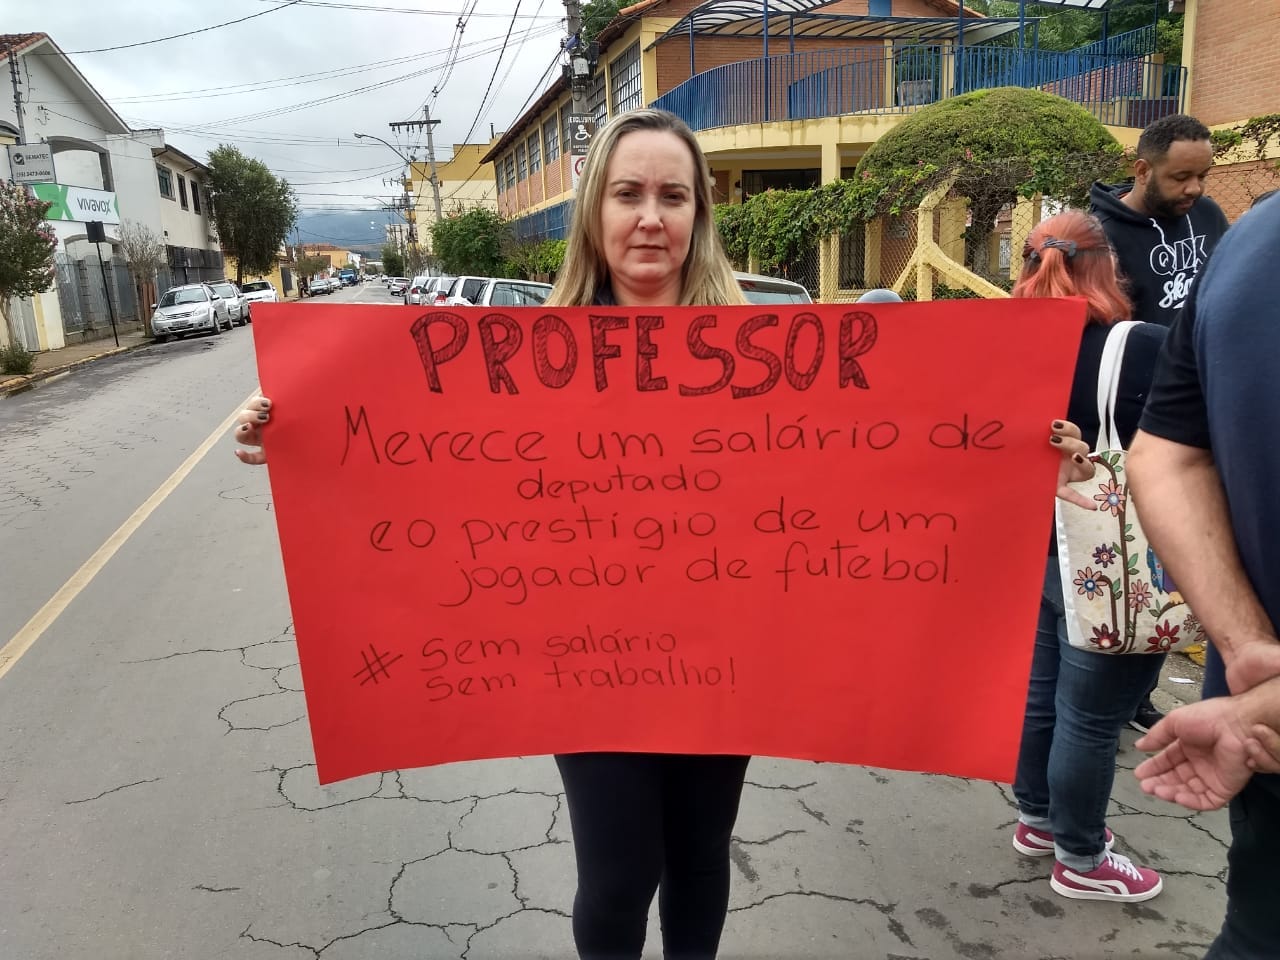 PROFESSOR
Merece um salário de
deputado
e o prestígio de um
jogador de futebol.
# Sem salário
Sem trabalho!
SEMATEC
vivavox
EXCLUSIVO
QIX